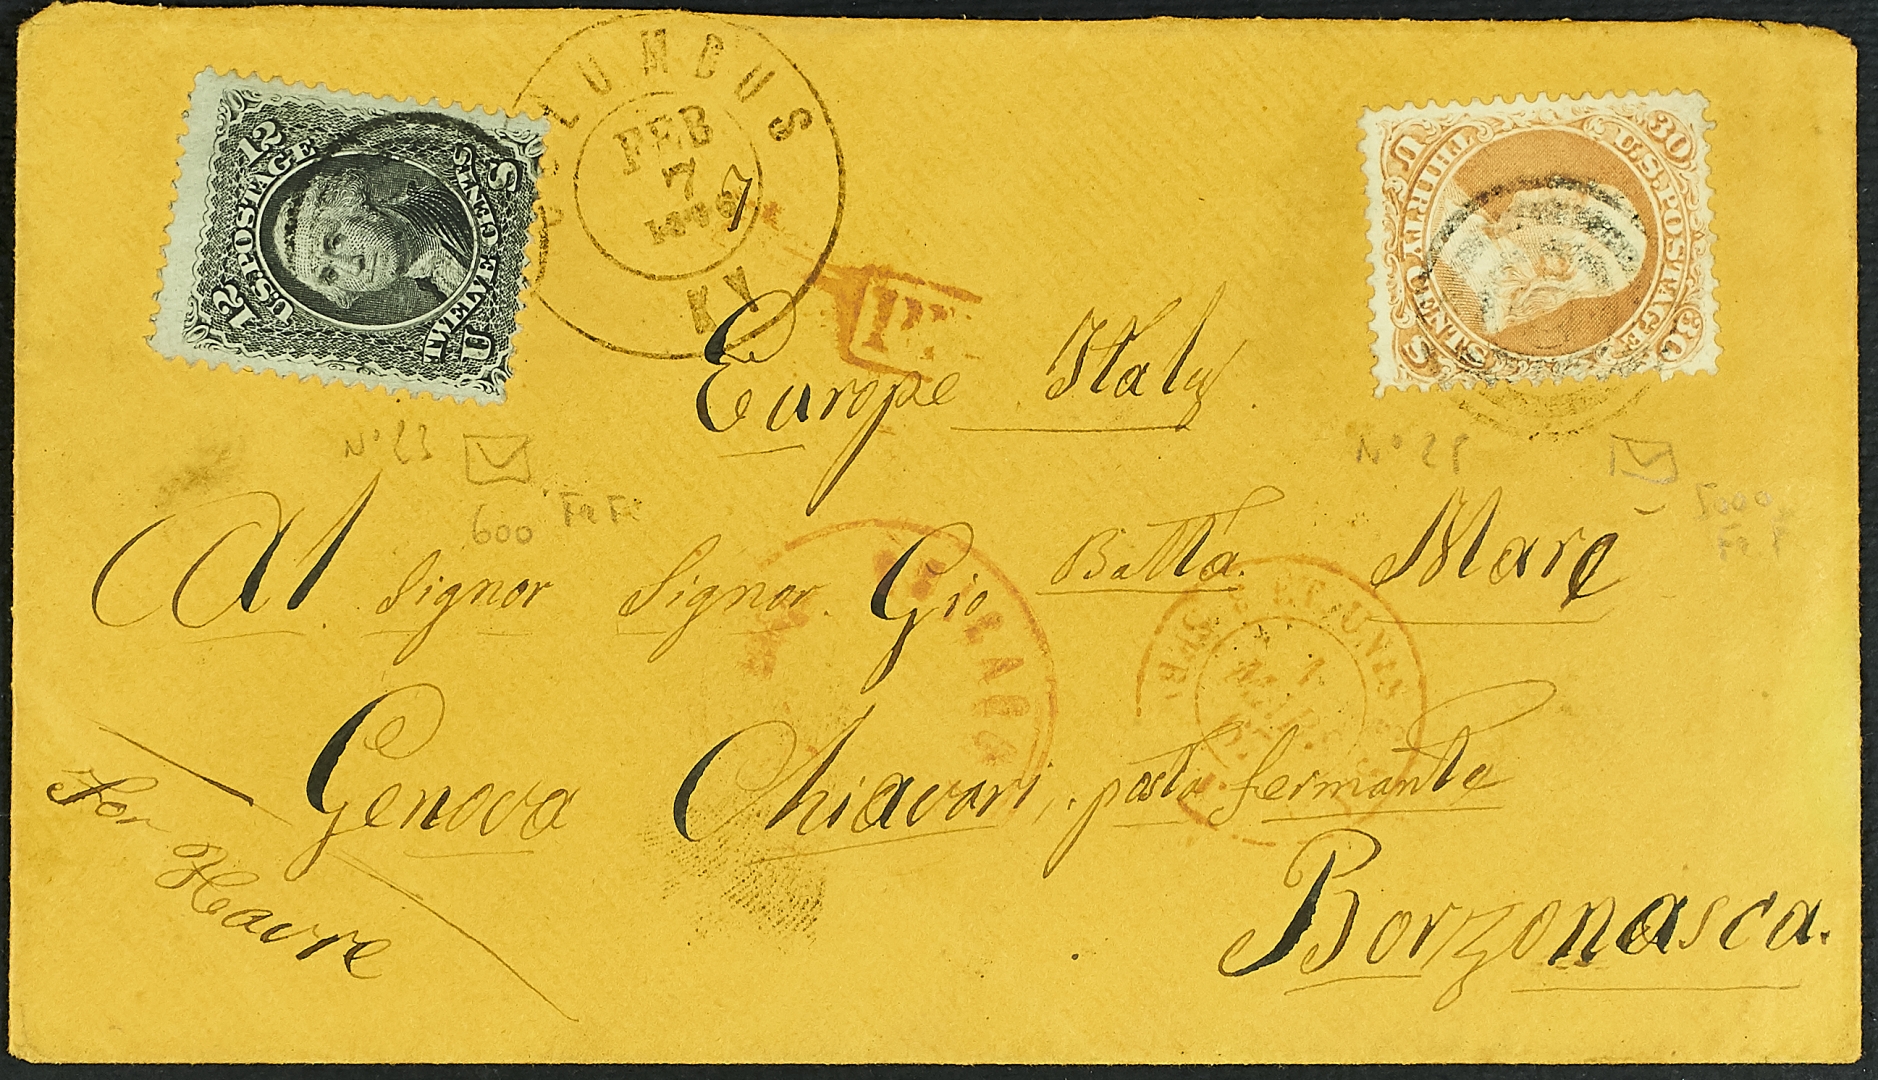 COLUMBUS
FEB
7
1867
KY
12 12
U.S. POSTAGE
TWELVE CENTS
U S
30 30
U.S. POSTAGE
THIRTY CENTS
U S
Europe Italy
N° 23
600
Al Signor Signor Gio Batta Mare
CHICAGO
Genova Chiavari, posta fermanta
Borzonasca.
For Havre